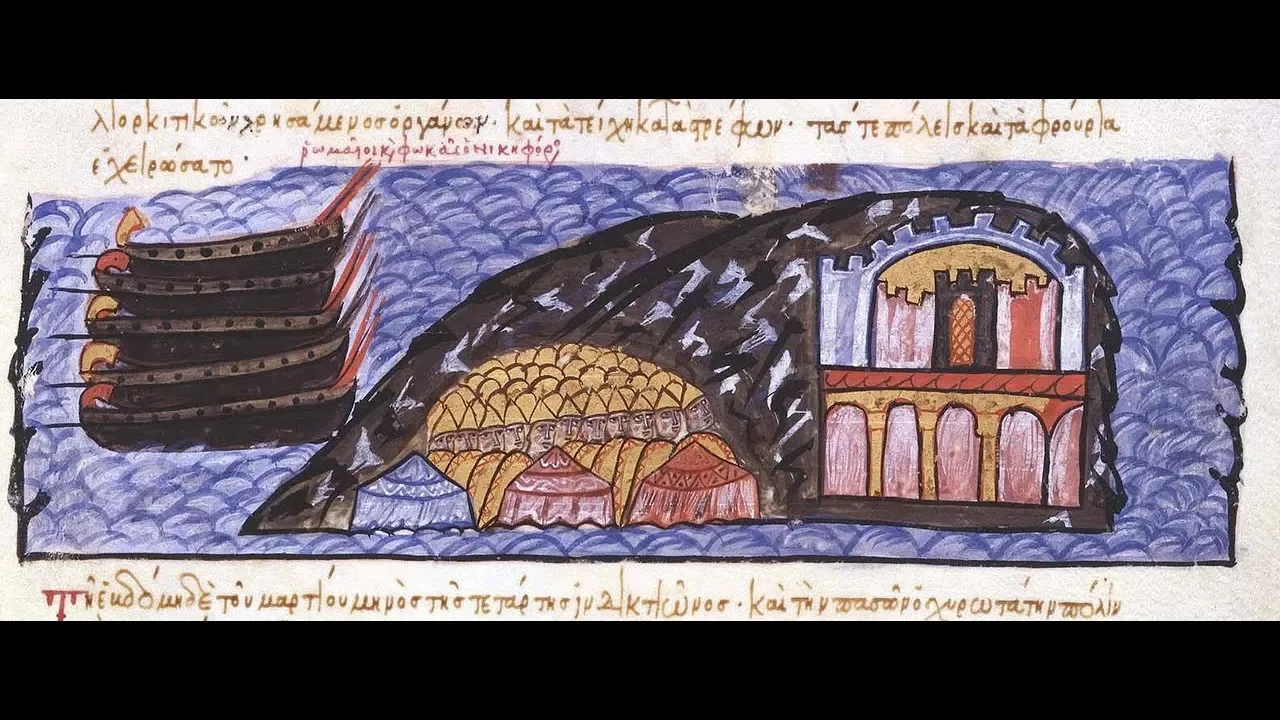 χρησάμενος ὀργάνων· καὶ τὰ τείχη καταστρέφων· τάς τε πόλεις καὶ τὰ φρούρια
ἐχειρώσατο·
ῥωμαῖοι κ, φωκᾶς ὁ νικηφόρο
Τῆ ἑβδόμη δὲ τοῦ μαρτίου μηνὸς τῆς τετάρτης ἰνδικτιῶνος· καὶ τὴν πασῶν ὀχυρωτάτην πόλιν